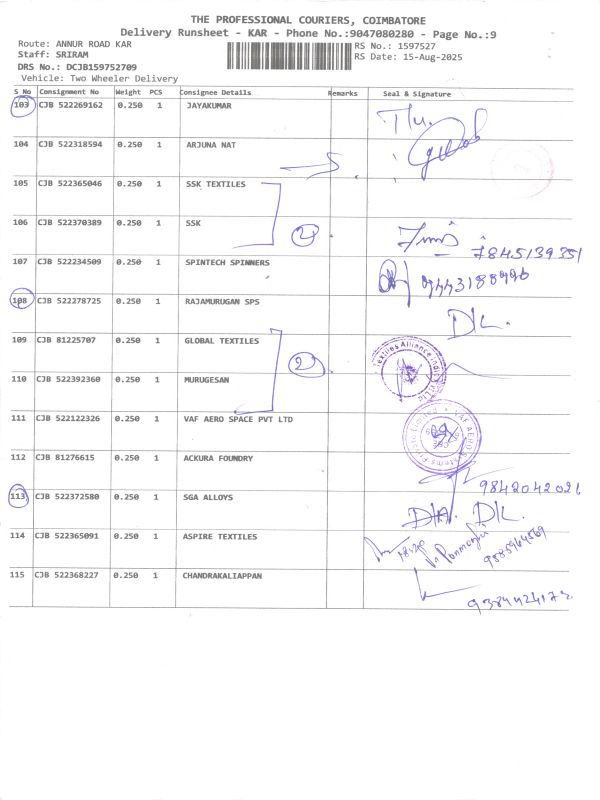 THE PROFESSIONAL COURIERS, COIMBATORE
Delivery Runsheet - KAR - Phone No.:9047080280 - Page No.:9
Route: ANNUR ROAD KAR
RS No.: 1597527
Staff: SRIRAM
RS Date: 15-Aug-2025
DRS No.: DCJB159752709
Vehicle: Two Wheeler Delivery
S No Consignment No Weight PCS Consignee Details Remarks Seal & Signature
103 CJB 522269162 0.250 1 JAYAKUMAR
104 CJB 522318594 0.250 1 ARJUNA NAT
105 CJB 522365046 0.250 1 SSK TEXTILES
106 CJB 522370389 0.250 1 SSK
7845139351
107 CJB 522234509 0.250 1 SPINTECH SPINNERS
9443188996
108 CJB 522278725 0.250 1 RAJAMURUGAN SPS
D/L.
109 CJB 81225707 0.250 1 GLOBAL TEXTILES 2
110 CJB 522392360 0.250 1 MURUGESAN
111 CJB 522122326 0.250 1 VAF AERO SPACE PVT LTD
112 CJB 81276615 0.250 1 ACKURA FOUNDRY
9842042021
113 CJB 522372580 0.250 1 SGA ALLOYS
D/L.
114 CJB 522365091 0.250 1 ASPIRE TEXTILES
115 CJB 522368227 0.250 1 CHANDRAKALIAPPAN